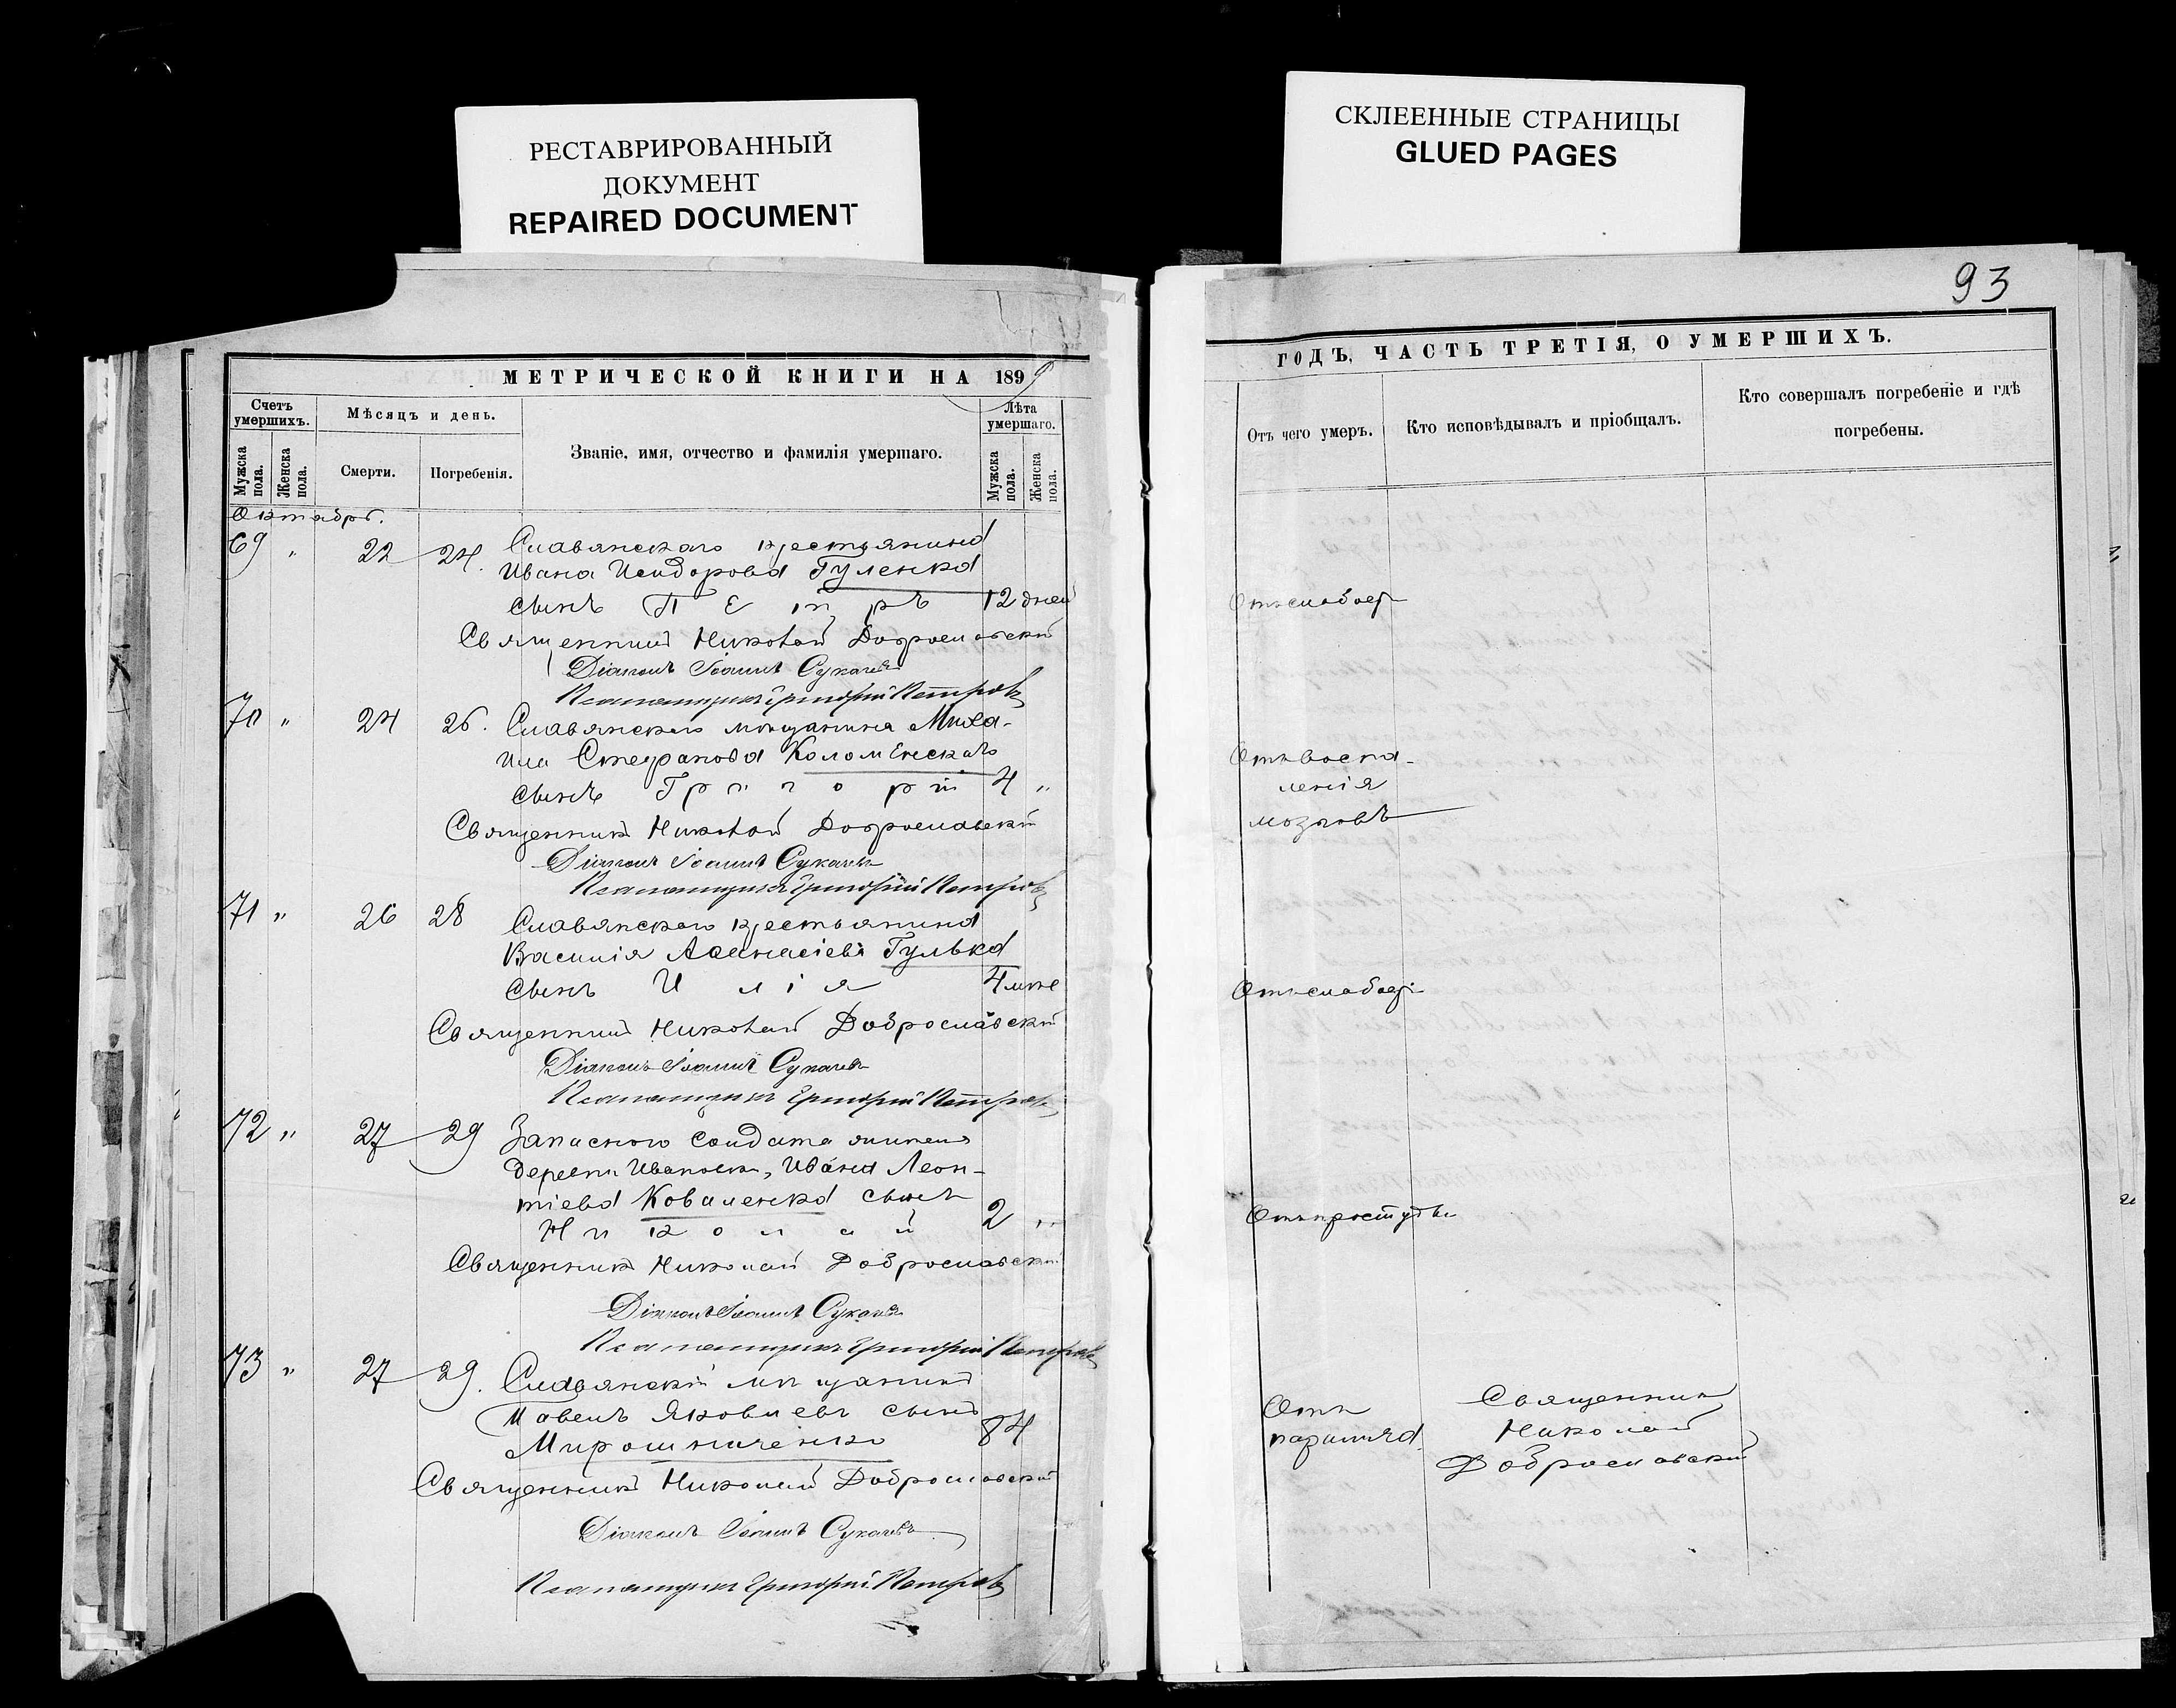 РЕСТАВРИРОВАННЫЙ
ДОКУМЕНТ
REPAIRED DOCUMENT
СКЛЕЕННЫЕ СТРАНИЦЫ
GLUED PAGES
МЕТРИЧЕСКОЙ КНИГИ НА 1899
Счетъ умершихъ.
Мѣсяцъ и день.
Званіе, имя, отчество и фамилія умершаго.
Лѣта умершаго.
Мужска пола.
Женска пола.
Смерти.
Погребенія.
Мужска пола.
Женска пола.
Октябрь.
69 " 22 24. Славянскаго крестьянина
Ивана Исидорова Гуленка
сынъ Петръ 12 дней
Священникъ Николай Доброславскій
Діаконъ Іоаннъ Сукачевъ
Псаломщикъ Григорій Петровъ
70 " 24 26. Славянскаго мѣщанина Миха-
ила Стефанова Коломенскаго
сынъ Григорій 4 "
Священникъ Николай Доброславскій
Діаконъ Іоаннъ Сукачевъ
Псаломщикъ Григорій Петровъ
71 " 26 28 Славянскаго крестьянина
Василія Аѳанасіева Гулька
сынъ Илія 4
Священникъ Николай Доброславскій
Діаконъ Іоаннъ Сукачевъ
Псаломщикъ Григорій Петровъ
72 " 27 29 Запаснаго солдата
деревни Ивановки, Ивана Леон-
тіева Коваленка сынъ
Николай 2 "
Священникъ Николай Доброславскій
Діаконъ Іоаннъ Сукачевъ
Псаломщикъ Григорій Петровъ
73 " 27 29. Славянскій мѣщанинъ
Павелъ Яковлевъ сынъ
Мирошниченко 84
Священникъ Николай Доброславскій
Діаконъ Іоаннъ Сукачевъ
Псаломщикъ Григорій Петровъ
93
ГОДЪ, ЧАСТЬ ТРЕТІЯ, О УМЕРШИХЪ.
Отъ чего умеръ.
Кто исповѣдывалъ и пріобщалъ.
Кто совершалъ погребеніе и гдѣ
погребены.
Отъ слабост
Отъ воспа-
ленія
мозговъ
Отъ слабост
Отъ простуды
Отъ
паралича
Священникъ
Николай
Доброславскій